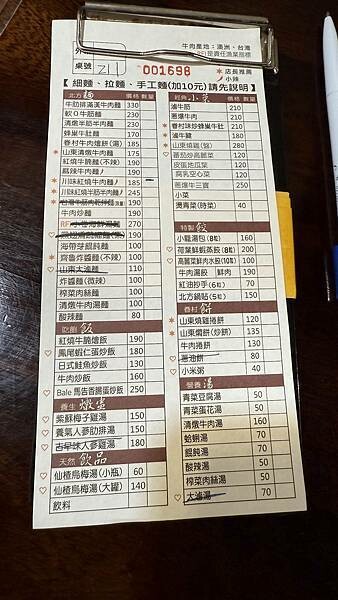 牛肉產地：澳洲、台灣
桌號 Z11 001698
★店長推薦
小辣
【 細麵、拉麵、手工麵(加10元)請先說明 】
北方麵 價格 數量
牛肋排滿漢牛肉麵 330
軟Q牛筋麵 230
清燉半筋半肉麵 230
蜂巢牛肚麵 170
眷村牛肉燴餅(湯) 185
山東清燉牛肉麵 175
紅燒牛腩麵(不辣) 190
麻辣牛肉麵 190
川味紅燒牛肉麵 185
川味紅燒半筋半肉麵 245
牛肉炒麵 190
270
海帶芽餛飩麵 100
齊魯炸醬麵(不辣) 100
山東大滷麵 110
炸醬麵(微辣) 100
榨菜肉絲麵 100
酸辣麵 80
飯 價格 數量
紅燒牛腩燴飯 190
鳳尾蝦仁蛋炒飯 180
日式鮭魚炒飯 130
牛肉炒飯 160
Bale 馬告香腸蛋炒飯 250
養生燉湯 價格 數量
紫蘇梅子雞湯 150
養氣人蔘肋排湯 150
古早味人蔘雞湯 150
天然飲品 價格 數量
仙楂烏梅湯(小瓶) 60
仙楂烏梅湯(大罐) 140
飲料
經典小菜 價格 數量
滷牛筋 210
蔥爆牛肉 210
眷村味炒蜂巢牛肚 210
滷牛腱 180
山東燒雞(盤) 280
蕃茄炒高麗菜 120
皮蛋地瓜葉 120
腐乳空心菜 120
蔥爆牛三寶 250
小菜
燙青菜(時菜) 40
特製餃 價格 數量
小籠湯包(8粒) 160
荷葉鮮蝦蒸餃(8粒) 200
高麗菜鮮肉水餃(10粒) 100
牛肉湯餃 鮮肉 190
紅油抄手(6粒) 70
北方鍋貼(5粒) 70
眷村餅 價格 數量
山東燒雞捲餅 130
山東燜餅(炒餅) 135
牛肉捲餅 130
蔥油餅 80
小米粥 40
營養湯 價格 數量
青菜豆腐湯 50
青菜蛋花湯 50
清燉牛肉湯 160
蛤蜊湯 70
餛飩湯 50
酸辣湯 50
榨菜肉絲湯 50
大滷湯 70